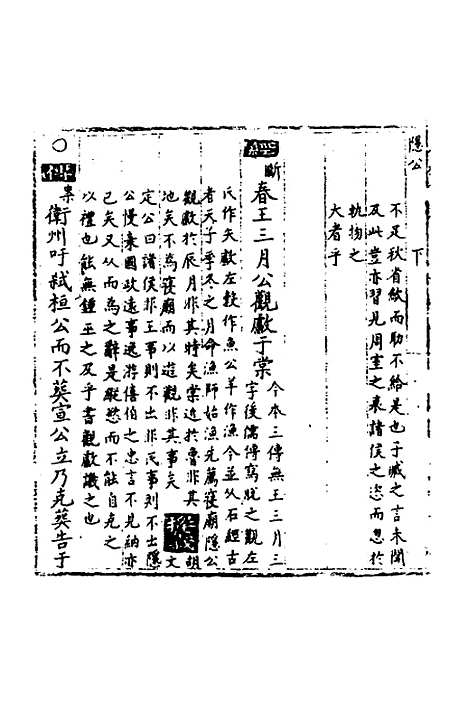 隱公
下
不足秋省斂而助不給是也子臧之言未聞
及此豈亦習見周室之衰諸侯之恣而忽於
軌物之
大者乎
經
斷
春王三月公觀𩼪于棠
今本三傳無王三月三
字後儒傳寫脫之觀左
氏作矢𩼪左穀作魚公羊作漁今並从石經古
者天子季冬之月命漁師始漁先薦寢廟隱公
觀𩼪於辰月非其時矣棠近於魯非其
地矣不為寢廟而以遊觀非其事矣
胡
文
定公曰諸侯非王事則不出非民事則不出隱
公慢棄國政遠事逸游僖伯之忠言不見納亦
已矣又从而為之辭是縱然而不能自克之
以禮也能無鍾巫之及乎書觀𩼪譏之也
衛州吁弑桓公而不葬宣公立乃克葬告于